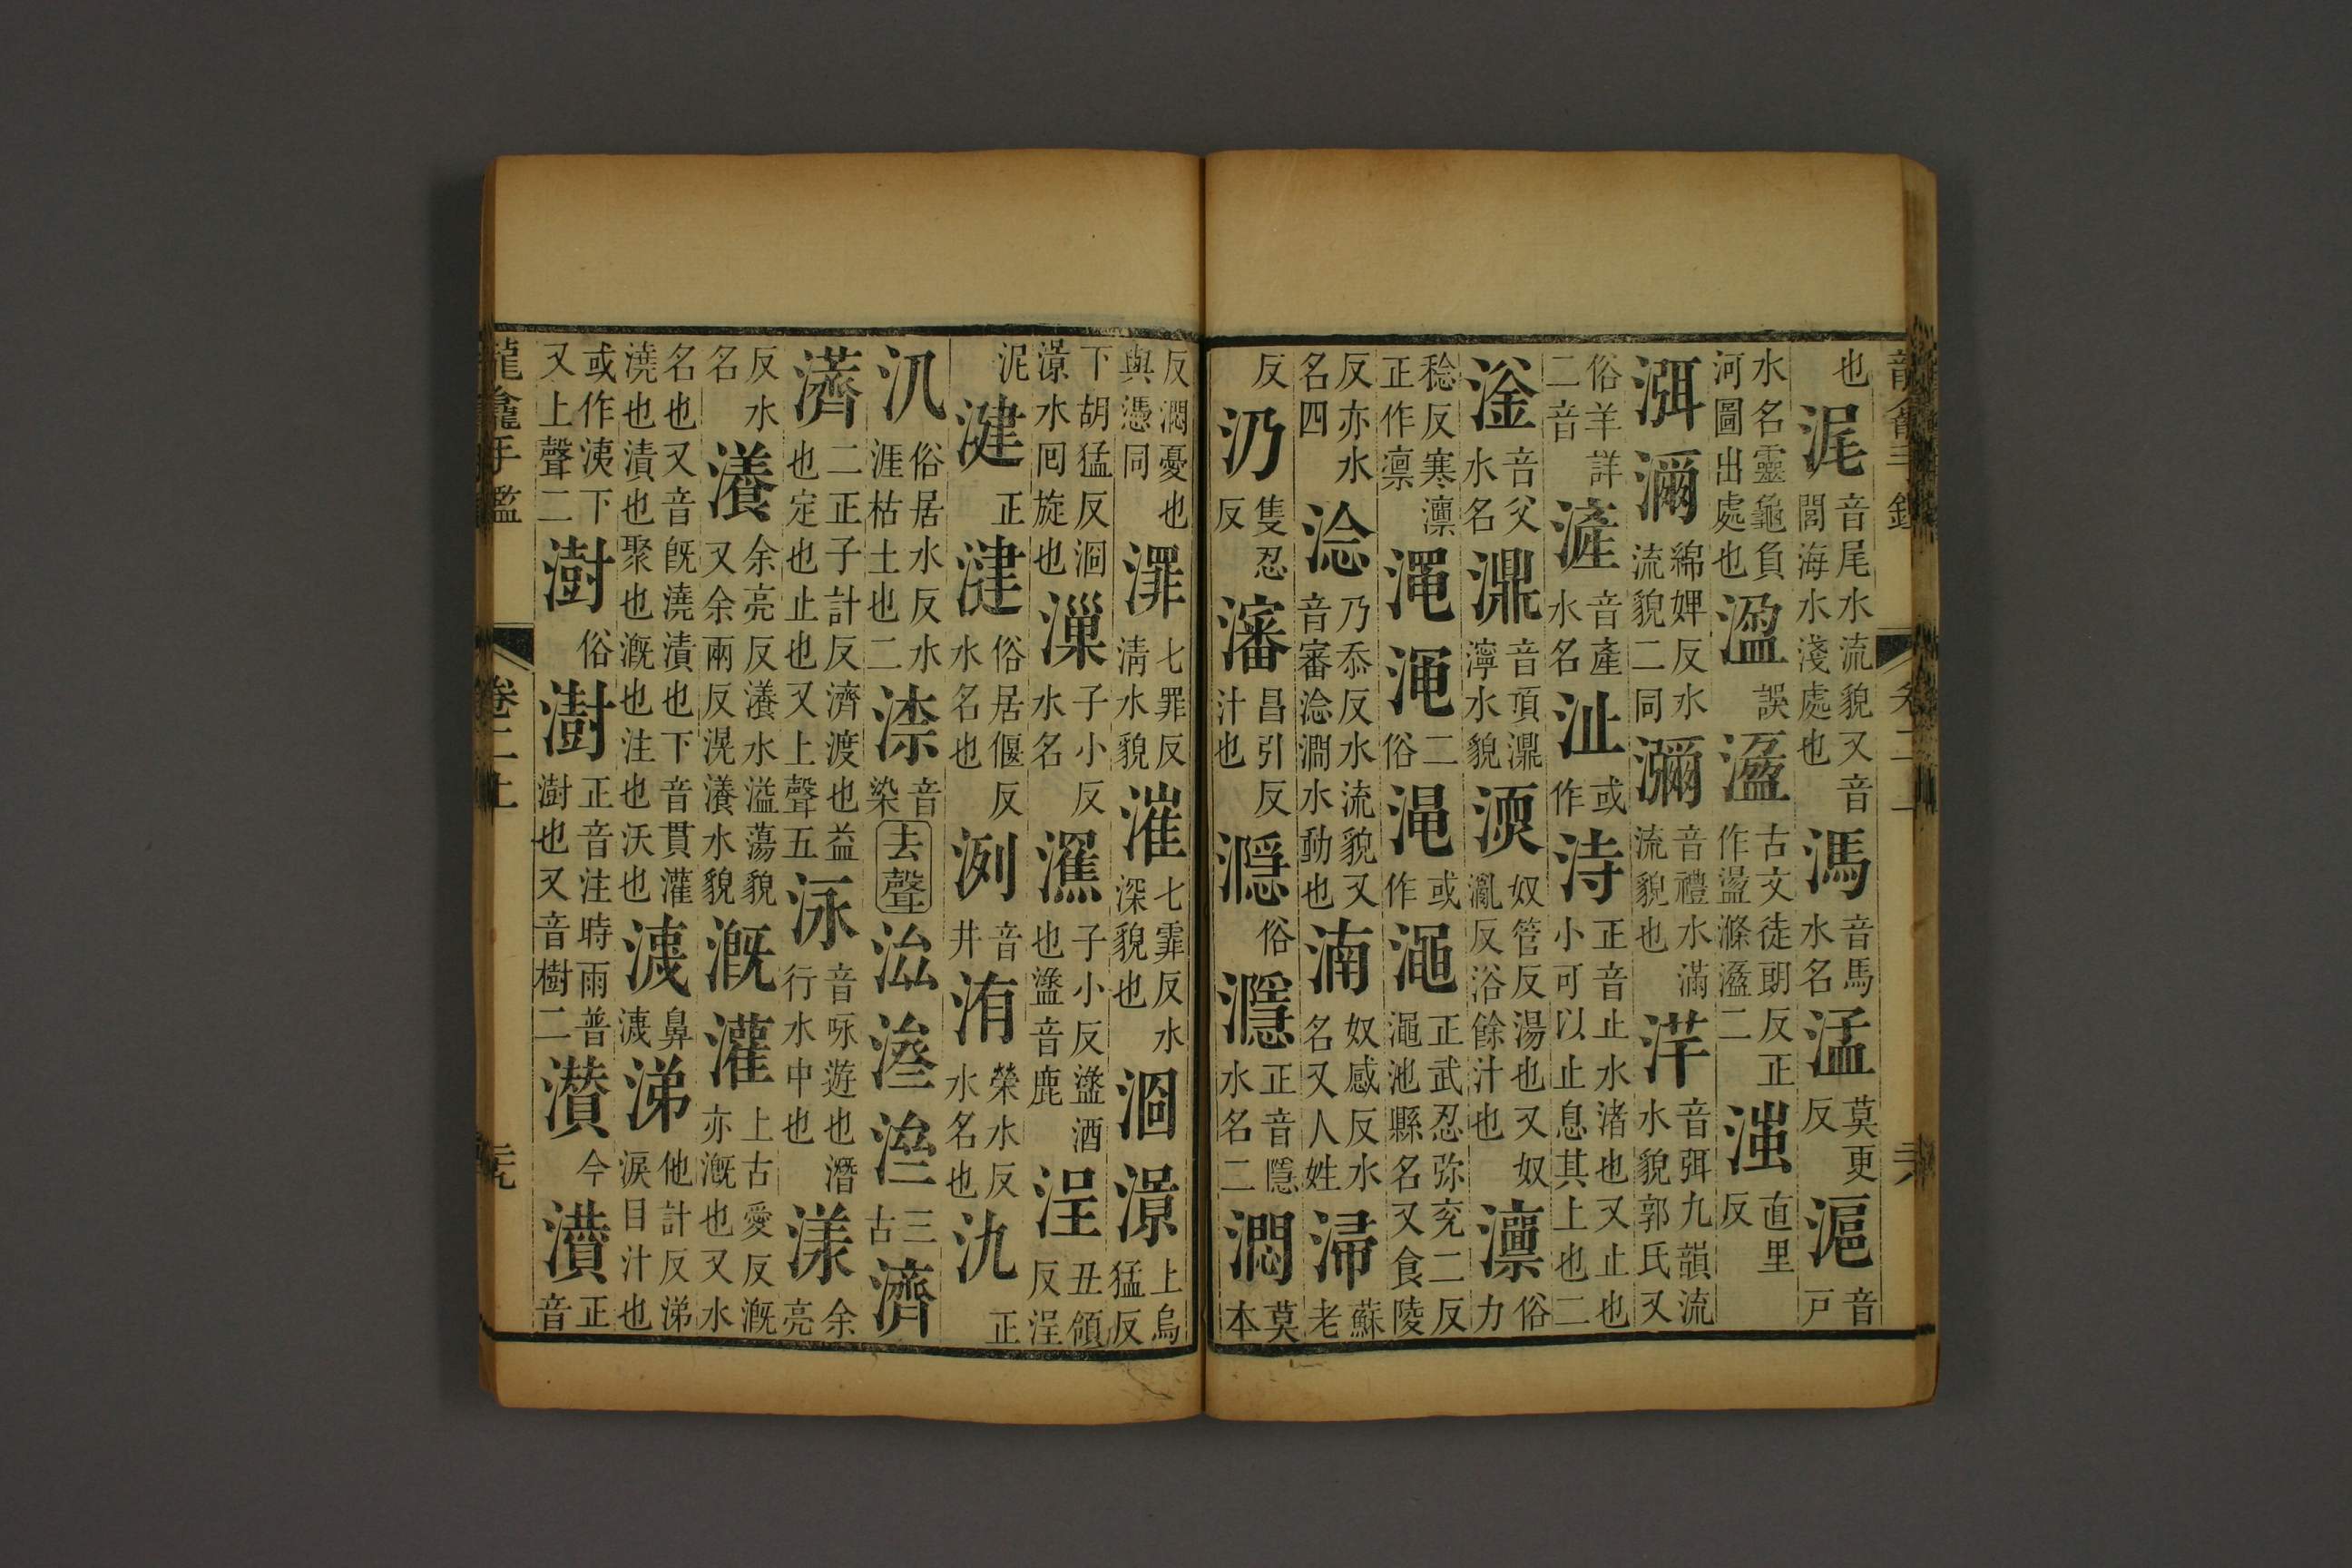 也浘音尾水流貌又音閭海水淺處也溤音馬水名㵛莫更反滬音戶
水名靈龜負河圖出處也誤古文徒朗反正作盪滌盪二直里反
渳瀰綿婢反水流貌二同瀰音禮水滿流貌也洋音弭九韻流水貌郭氏又
俗羊詳二音滻音產水名沚或作洔正音止水渚也又止也小可以止息其上也二
滏音父水名濎音頂濎濘水貌渜奴管反湯也又奴亂反浴餘汁也凛俗力
稔反寒凛正作凜二俗或作澠正武忍弥兖二反澠池縣名又食陵
反亦水名四淰乃忝反水流貌又音審淰澗水動也湳奴感反水名又人姓㴆蘇老
反沕隻忍反瀋昌引反汁也㶏俗濦正音隱水名二㵍莫本
反㵍憂也與懣同㵽七罪反清水貌漼七霏反水深貌也㴏澋上烏猛反
下胡猛反㴏澋水回旋也漅子小反水名潐子小反盝酒也盝音鹿浧丑領反浧
泥湕正湕俗居偃反水名也洌音井洧榮水反水名也氿正
汎俗居水反水涯枯土也二㴃音染去聲三古濟
濟二正子計反濟渡也益也定也止也又上聲五泳音咏遊也潛行水中也漾余亮
反水名瀁余亮反瀁水溢蕩貌又余兩反滉瀁水貌溉灌上古愛反溉亦溉也又水
名也又音旣澆漬也下音貫灌澆也漬也聚也溉也注也沃也洟鼻洟涕他計反涕淚目汁也
或作洟下又上聲二澍俗澍正音注時雨普澍也又音樹二濽今灒正音
龍龕手鑑
卷二上